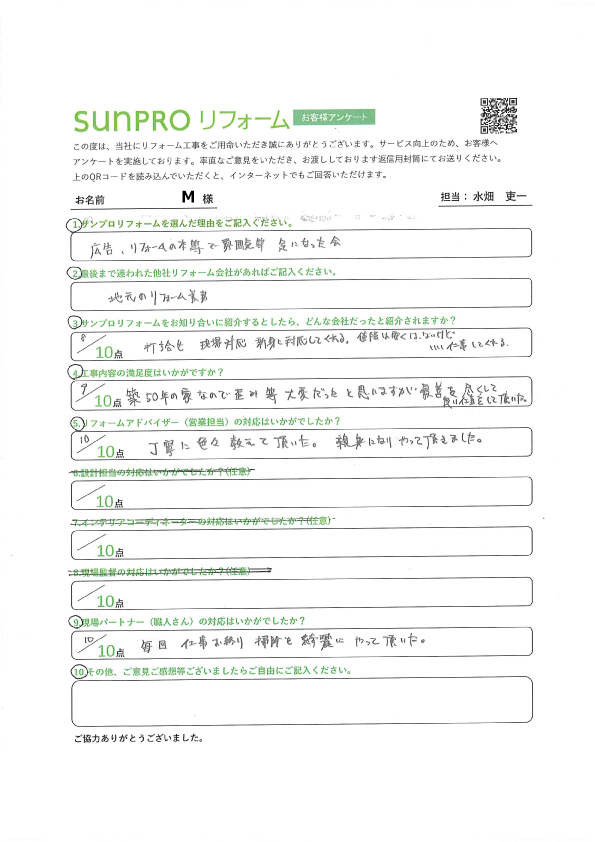 sunPRO リフォーム お客様アンケート
この度は、当社にリフォーム工事をご用命いただき誠にありがとうございます。サービス向上のため、お客様へ
アンケートを実施しております。率直なご意見をいただき、お渡ししております返信用封筒にてお送りください。
上のQRコードを読み込んでいただくと、インターネットでもご回答いただけます。
お名前 M 様 担当：水畑 吏一
1.サンプロリフォームを選んだ理由をご記入ください。
広告、リフォームの本等で 気になった会
2.最後まで迷われた他社リフォーム会社があればご記入ください。
地元のリフォーム業者
3.サンプロリフォームをお知り合いに紹介するとしたら、どんな会社だったと紹介されますか？
8/10点 打合せ 現場対応 親身に対応してくれる。値段は安くはないけど
いい仕事してくれる。
4.工事内容の満足度はいかがですか？
9/10点 築50年の家なので歪み等大変だったと思いますが最善を尽くして
良い仕事をして頂いた。
5.リフォームアドバイザー（営業担当）の対応はいかがでしたか？
10/10点 丁寧に色々教えて頂いた。 親身になりやって頂きました。
6.設計担当の対応はいかがでしたか？(任意)
/10点
7.インテリアコーディネーターの対応はいかがでしたか？(任意)
/10点
8.現場監督の対応はいかがでしたか？(任意)
/10点
9.現場パートナー（職人さん）の対応はいかがでしたか？
10/10点 毎回 仕事お終り 掃除も綺麗に やって頂いた。
10.その他、ご意見ご感想等ございましたらご自由にご記入ください。
ご協力ありがとうございました。